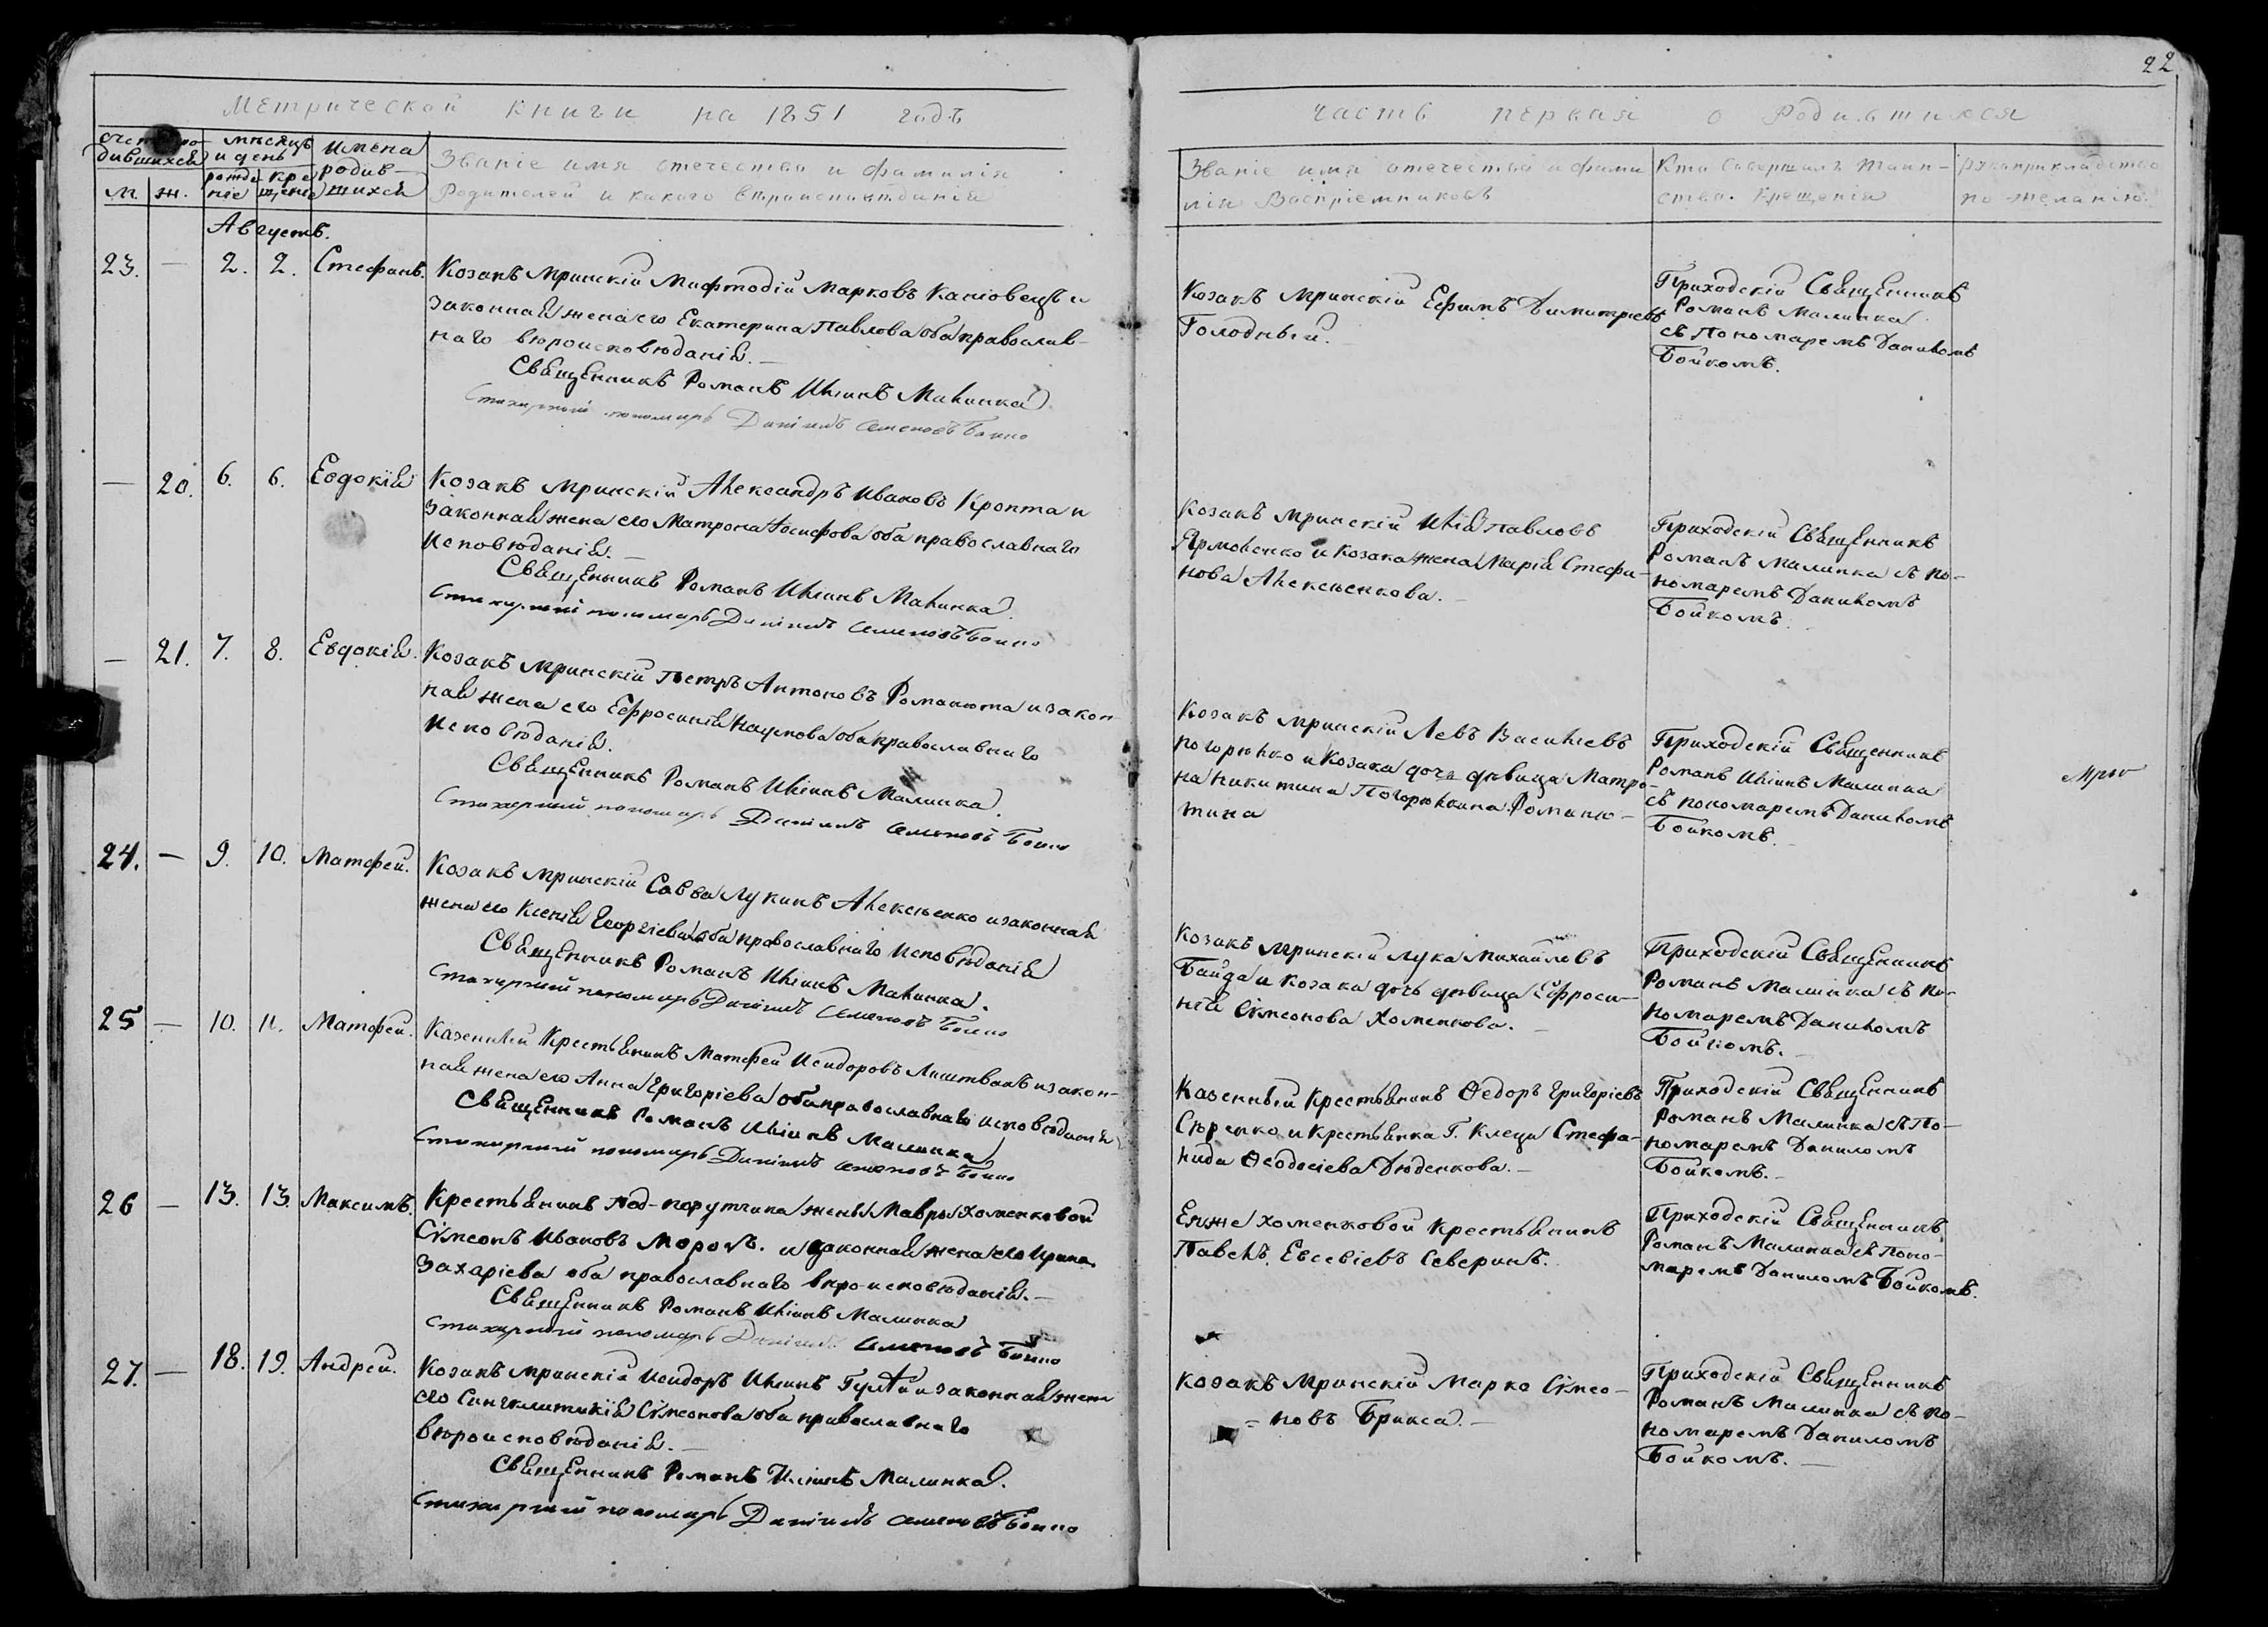 22
Метрической книги на 1851 годъ
часть первая о Родившихся
счетъ родившихся
мѣсяцъ и день
имена родившихся
Званіе имя отечество и фамилія
Родителей и какого вѣроисповѣданія
м. ж. рожденіе крещеніе
Званіе имя отечество и фамилія Воспріемниковъ
Кто совершилъ Таинство Крещенія
Рукоприкладство по желанію.
Августъ.
23. — 2. 2. Стефанъ. Козакъ мринскій Мифтодій Марковъ Каніовецъ и
законная жена его Екатерина Павлова оба православ-
наго вѣроисповѣданія. —
Священникъ Романъ Иліинъ Малинка
Стихарный пономарь Даніилъ Семеновъ Бойко
Козакъ мринскій Ефимъ Димитріевъ
Голодный.
Приходскій Священникъ
Романъ Малинка
съ Пономаремъ Даниломъ
Бойкомъ.
— 20. 6. 6. Евдокія Козакъ мринскій Александръ Ивановъ Кропта и
законная жена его Матрона Іосифова оба православнаго
исповѣданія. —
Священникъ Романъ Иліинъ Малинка
Стихарный пономарь Даніилъ Семеновъ Бойко
Козакъ мринскій Илія Павловъ
Ярмоленко и Козака жена Марія Стефа-
нова Алексѣенкова. —
Приходскій Священникъ
Романъ Малинка съ по-
номаремъ Даниломъ
Бойкомъ.
— 21. 7. 8. Евдокія. Козакъ мринскій Петръ Антоновъ Романюта и закон-
ная жена его Ефросинія Наумова оба православнаго
исповѣданія.
Священникъ Романъ Иліинъ Малинка.
Стихарный пономарь Даніилъ Семеновъ Бойко
Козакъ мринскій Левъ Василіевъ
погорѣлко и Козака дочь дѣвица Матро-
на Никитина Погорѣлкина Романю-
тина
Приходскій Священникъ
Романъ Иліинъ Малинка
съ пономаремъ Даниломъ
Бойкомъ.
24. — 9. 10. Матфей. Козакъ мринскій Савва Лукинъ Алексѣенко и законная
жена его Ксенія Георгіева оба православнаго исповѣданія
Священникъ Романъ Иліинъ Малинка.
Стихарный пономарь Даніилъ Семеновъ Бойко
Козакъ мринскій Лука Михайловъ
Байда и козака дочь дѣвица Ефроси-
нія Сімеонова Хоменкова. —
Приходскій Священникъ
Романъ Малинка съ По-
номаремъ Даниломъ
Бойкомъ. —
25 — 10. 11. Матфей. Казенный Крестьянинъ Матфей Исидоровъ Лиштванъ и закон-
ная жена его Анна Григоріева оба православнаго исповѣданія
Священникъ Романъ Иліинъ Малинка
Стихарный пономарь Даніилъ Семеновъ Бойко
Казенный Крестьянинъ Ѳедоръ Григоріевъ
Сѣренко и Крестьянка Г. Клеци Стефа-
нида Ѳеодосіева Дѣденкова. —
Приходскій Священникъ
Романъ Малинка съ По-
номаремъ Даниломъ
Бойкомъ. —
26 — 13. 13. Максимъ. Крестьянинъ Под-поручика жены Мавры Хоменковой
Сімеонъ Ивановъ Морозъ. и законная жена его Ирина
Захаріева оба православнаго вѣро-исповѣданія. —
Священникъ Романъ Иліинъ Малинка
Стихарный пономарь Даніилъ Семеновъ Бойко
Ея же Хоменковой Крестьянинъ
Павелъ Евсевіевъ Северинъ.
Приходскій Священникъ
Романъ Малинка съ Поно-
маремъ Даниломъ Бойкомъ.
27. — 18. 19. Андрей. Козакъ мринскій Исидоръ Иліинъ и законная жена
его Сингклитикія Сімеонова оба православнаго
вѣроисповѣданія. —
Священникъ Романъ Иліинъ Малинка.
Стихарный пономарь Даніилъ Семеновъ Бойко
Козакъ Мринскій Марко Сімео-
= новъ Брикса. —
Приходскій Священникъ
Романъ Малинка съ по-
номаремъ Даниломъ
Бойкомъ. —